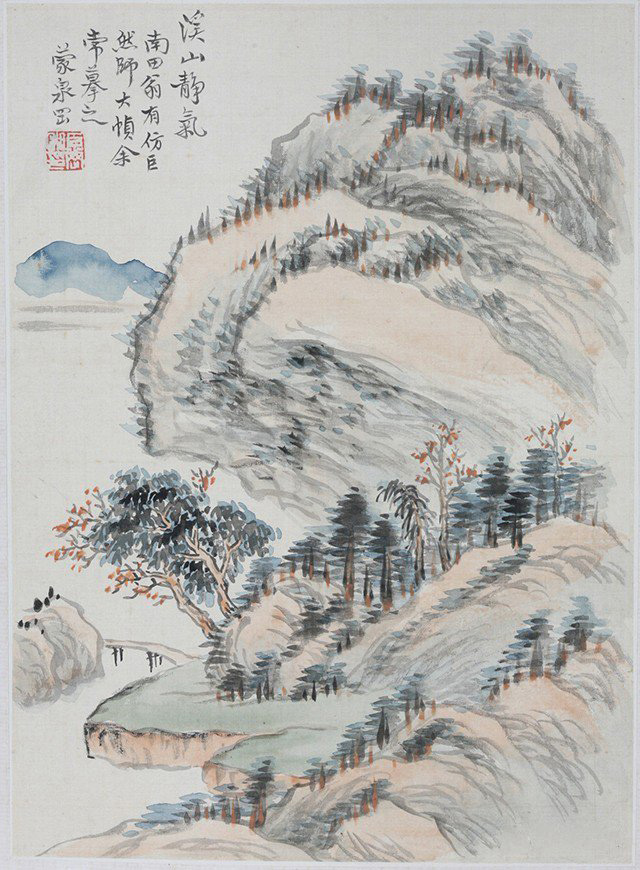 溪山靜氣
南田翁有仿巨
然師大幀余
常摹之
蒙泉